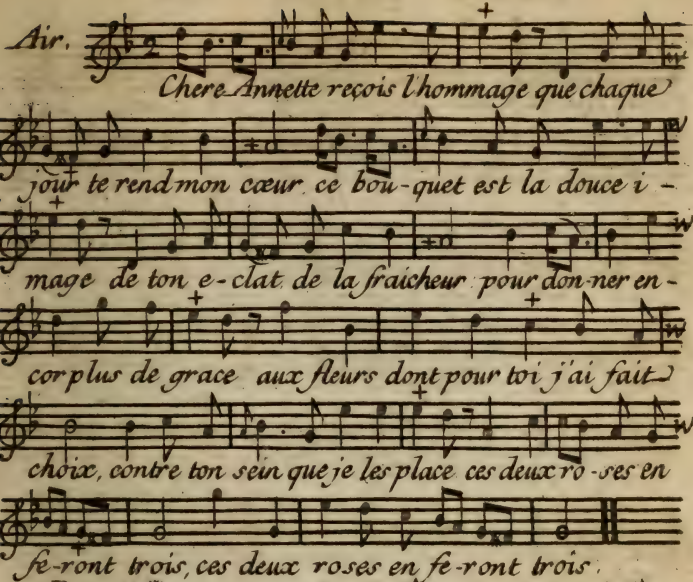 Air.
Chere Annette reçois l'hommage que chaque
jour te rend mon cœur ce bou-quet est la douce i-
mage de ton e-clat de la fraicheur pour don-ner en-
cor plus de grace aux fleurs dont pour toi j'ai fait
choix, contre ton sein que je les place ces deux ro-ses en
fe-ront trois, ces deux roses en fe-ront trois.